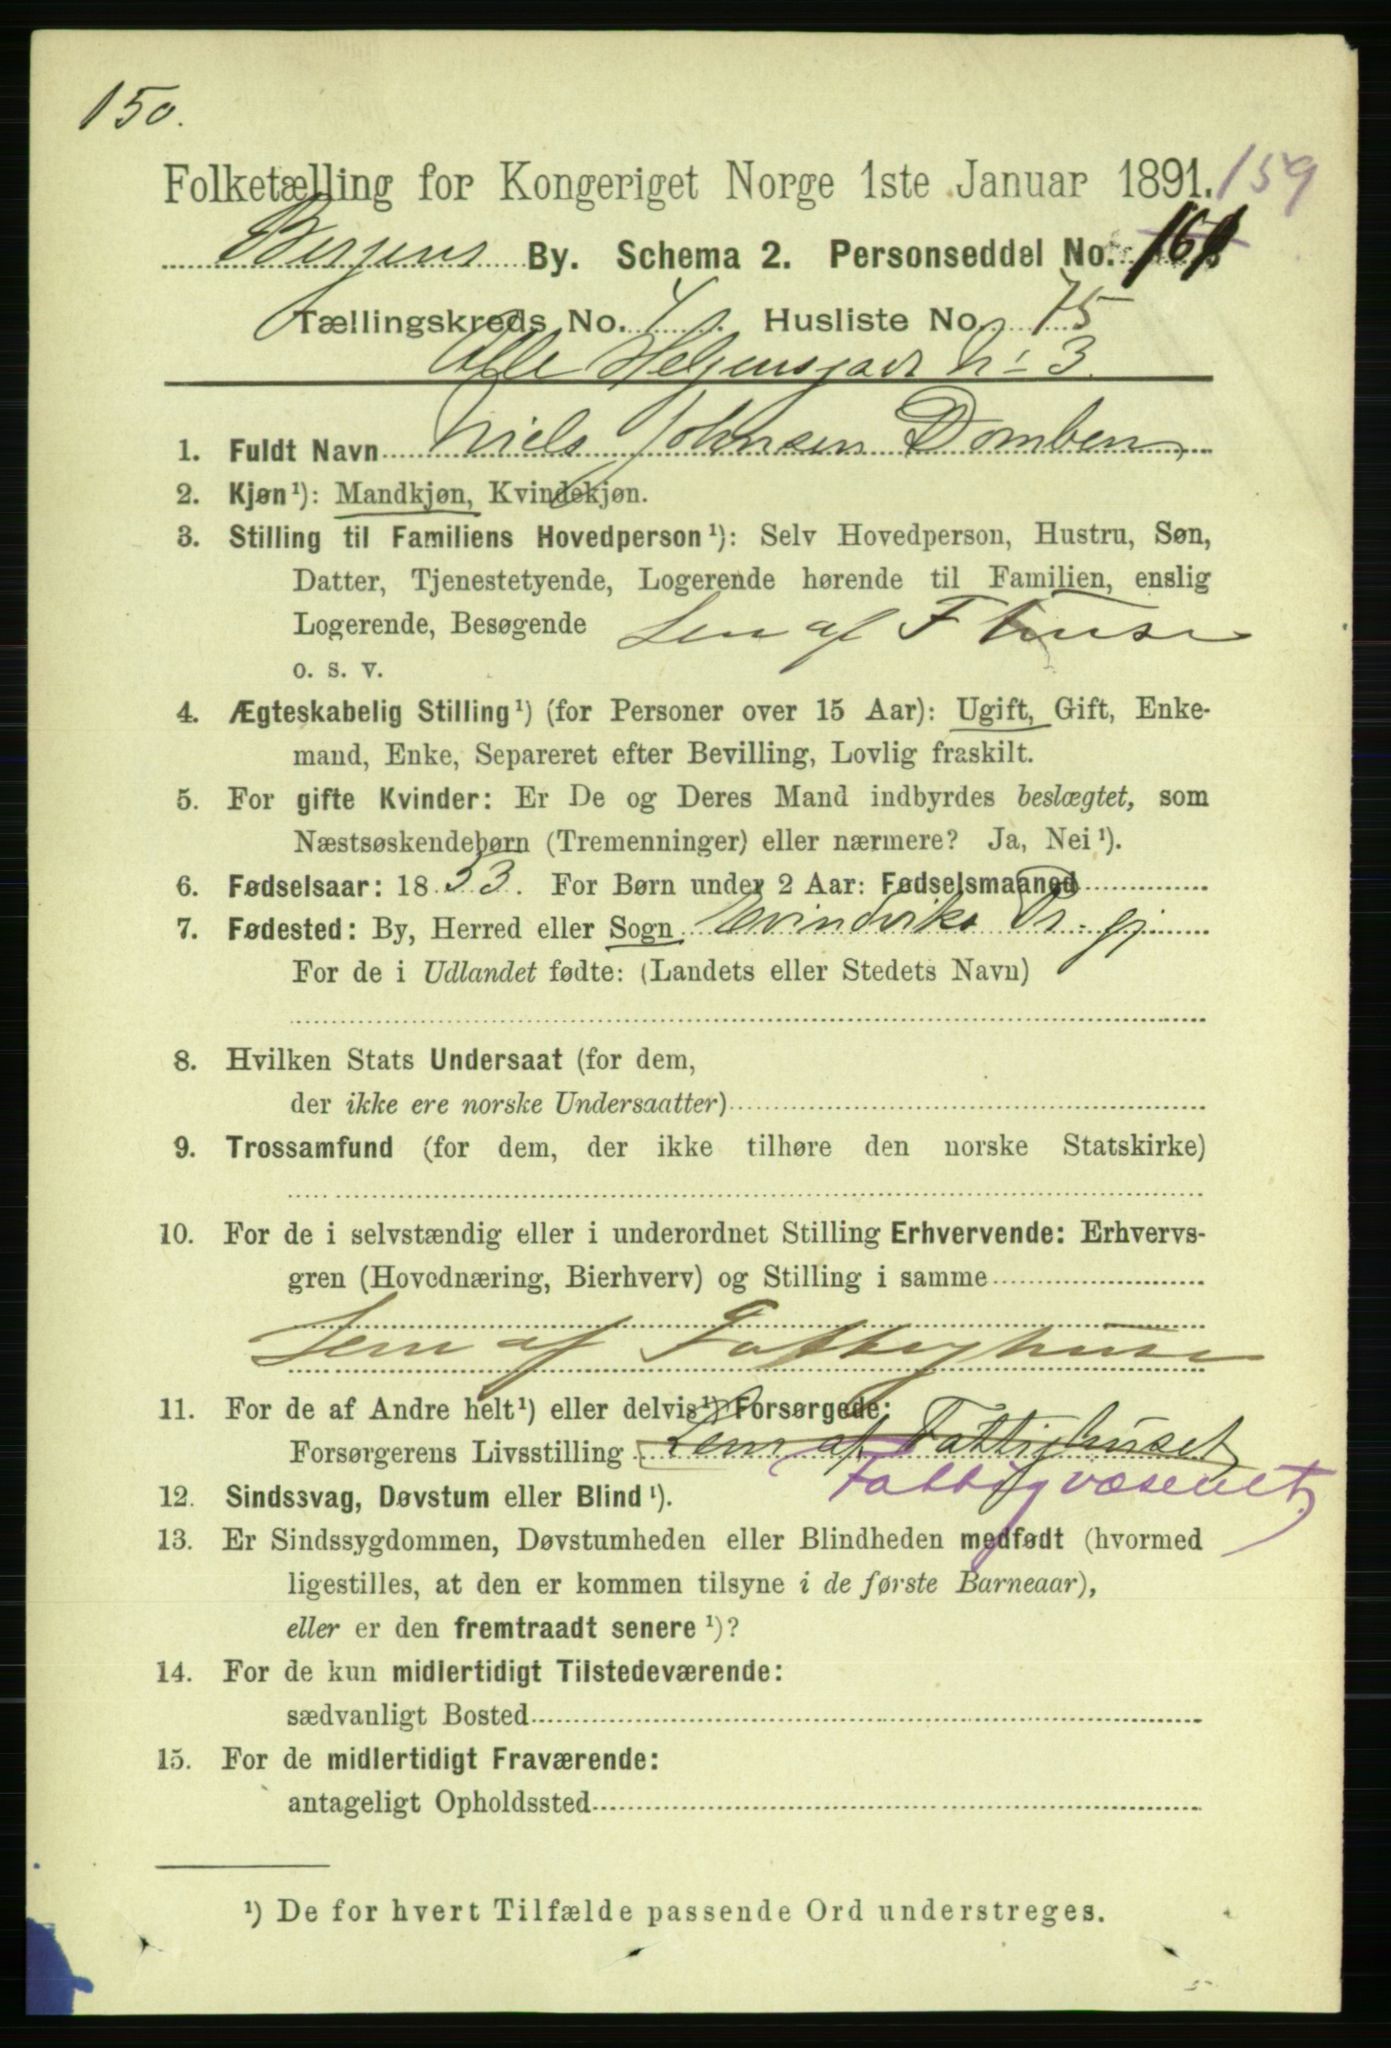 150.
Folketælling for Kongeriget Norge 1ste Januar 1891. 159
Bergens By. Schema 2. Personseddel No. 161
Tællingskreds No. 4. Husliste No. 75
Alle Helgensgade No 3.
1. Fuldt Navn Niels Johnsen Domben
2. Kjøn¹): Mandkjøn, Kvindekjøn.
3. Stilling til Familiens Hovedperson¹): Selv Hovedperson, Hustru, Søn,
Datter, Tjenestetyende, Logerende hørende til Familien, enslig
Logerende, Besøgende Lem af F huse
o. s. v.
4. Ægteskabelig Stilling¹) (for Personer over 15 Aar): Ugift, Gift, Enke-
mand, Enke, Separeret efter Bevilling, Lovlig fraskilt.
5. For gifte Kvinder: Er De og Deres Mand indbyrdes beslægtet, som
Næstsøskendebørn (Tremenninger) eller nærmere? Ja, Nei¹).
6. Fødselsaar: 1833. For Børn under 2 Aar: Fødselsmaaned
7. Fødested: By, Herred eller Sogn Evindviks Pr.gj
For de i Udlandet fødte: (Landets eller Stedets Navn)
8. Hvilken Stats Undersaat (for dem,
der ikke ere norske Undersaatter)
9. Trossamfund (for dem, der ikke tilhøre den norske Statskirke)
10. For de i selvstændig eller i underordnet Stilling Erhvervende: Erhvervs-
gren (Hovednæring, Bierhverv) og Stilling i samme
Lem af Fattighuse
11. For de af Andre helt¹) eller delvis¹) Forsørgede:
Forsørgerens Livsstilling Lem af Fattighuset
Fattigvæsenet.
12. Sindssvag, Døvstum eller Blind¹).
13. Er Sindssygdommen, Døvstumheden eller Blindheden medfødt (hvormed
ligestilles, at den er kommen tilsyne i de første Barneaar),
eller er den fremtraadt senere¹)?
14. For de kun midlertidigt Tilstedeværende:
sædvanligt Bosted
15. For de midlertidigt Fraværende:
antageligt Opholdssted
¹) De for hvert Tilfælde passende Ord understreges.